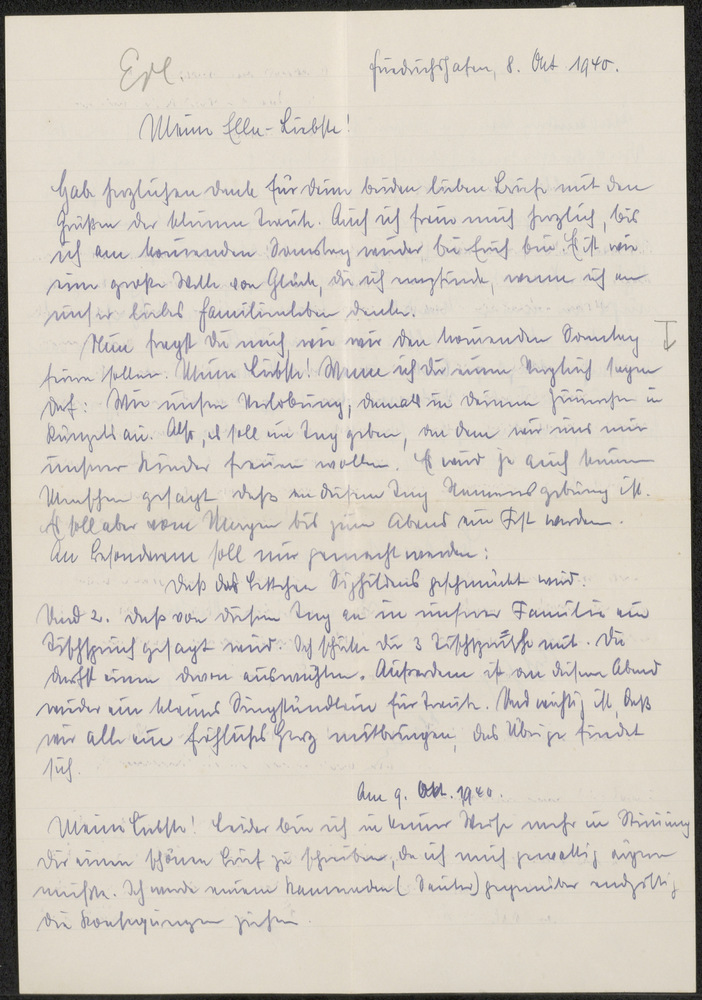 Erl.
Friedrichshafen, 8. Okt 1940.
Meine Ella-Liebste!
Hab herzlichen Dank für Deine beiden lieben Briefe mit den
Grüßen der kleinen Traute. Auch ich freue mich herzlich, bis
ich am kommenden Samstag wieder bei Euch bin. Es ist wie
eine große Welle von Glück, die ich empfinde, wenn ich an
unser liebes Familienleben denke.
Nun fragst Du mich, wie wir den kommenden Sonntag
feiern sollen. Meine Liebste! Wenn ich Dir einen Vergleich sagen
darf: Wie unsere Verlobung, damals in Deinem Zimmerchen in
Künzelsau. Also, es soll ein Tag geben, an dem wir uns nur
unserer Kinder freuen wollen. Es wird ja auch keinem
Menschen gesagt, daß an diesem Tag Namensgebung ist.
Es soll aber vom Morgen bis zum Abend ein Fest werden.
An Besonderem soll nur gemacht werden:
Daß das Bettchen Sieghildens geschmückt wird.
Und 2. daß von diesem Tag an in unserer Familie ein
Tischspruch gesagt wird. Ich schicke Dir 3 Tischsprüche mit. Du
darfst einen davon auswählen. Außerdem ist an diesem Abend
wieder ein kleines Singstündlein für Traute. Und wichtig ist, daß
wir alle ein fröhliches Herz mitbringen, das Übrige findet
sich.
Am 9. Okt. 1940.
Meine Liebste! Leider bin ich in keiner Weise mehr in Stimmung
Dir einen schönen Brief zu schreiben, da ich mich gewaltig ärgern
mußte. Ich werde meinem Kameraden (Sauter) gegenüber endgültig
die Konsequenzen ziehen.